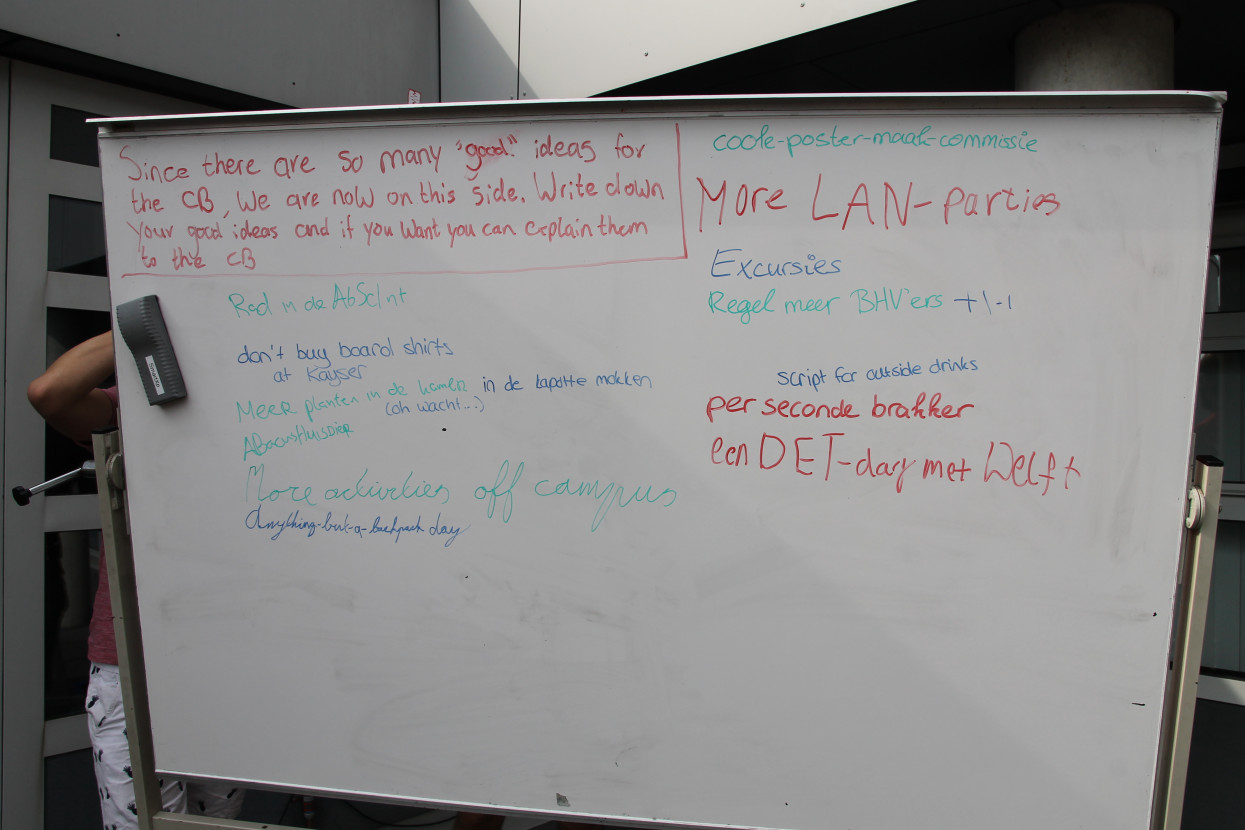 Since there are so many "good" ideas for
the CB, we are now on this side. Write down
your good ideas and if you want you can explain them
to the CB
Rad in de AbScInt
don't buy board shirts
at Kayser
Meer planten in de kamer in de kapotte mokken
(oh wacht...)
Abacushuisdier
More activities off campus
Anything-but-a-backpack day
coole-poster-maak-commissie
More LAN-parties
Excursies
Regel meer BHV'ers +1 -1
script for outside drinks
per seconde brakker
een DET-day met Delft